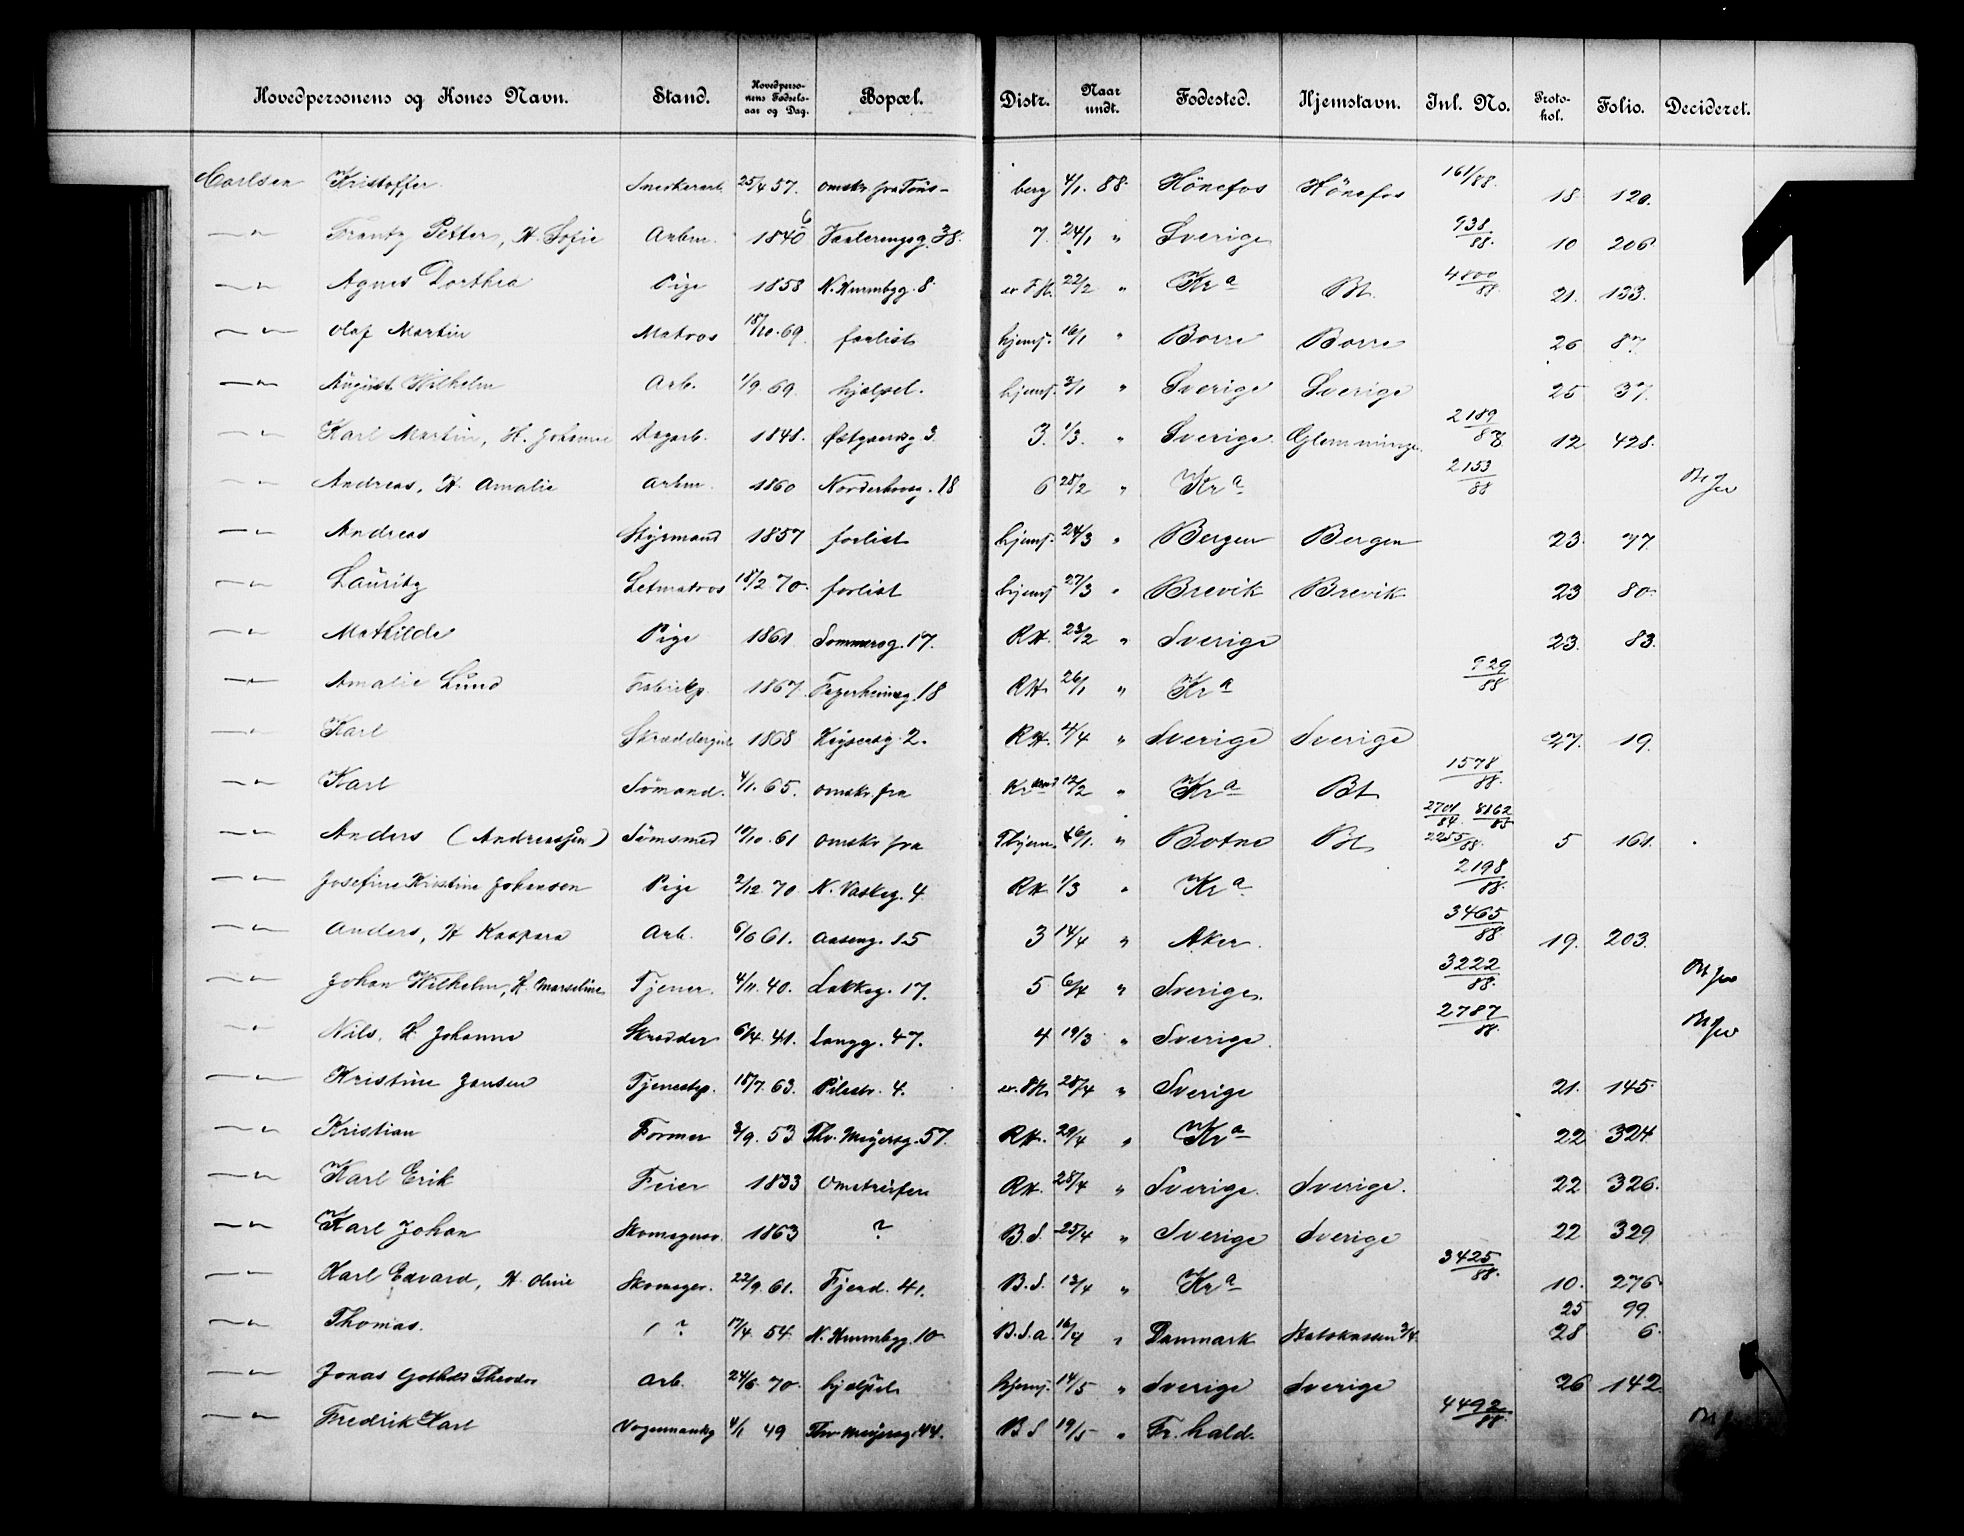 Hovedpersonens og Kones Navn. Stand. Hovedperso-nens Fødsels-aar og Dag. Bopæl. Distr. Naar undt. Fødested. Hjemstavn. Inl. No. Proto-kol. Folio. Decideret.
Carlsen Kristoffer Snedkerarb. 25/4 57. omskr. fra Töns- berg 4/1 88. Hönefos Hönefos 161/88. 18 120.
—"— Frantz Petter, H. Sofie Arbm. 1840 6 Vaalerengsg. 38. 7. 24/1 " Sverige 938/88. 10 206
—"— Agnes Dorthea Pige 1858 N. Hammbg. 8. 22/2 " Kra Bt. 4800/88 21. 133.
—"— Olaf Martin Matros 18/10. 69. forlist hjemf. 16/1 " Borre Borre 26 87.
—"— August Wilhelm Arb. 1/9. 69. hjælpel. hjemf. 3/1 " Sverige Sverige 25 37.
—"— Karl Martin, H. Johanne Dagarb. 1848. 3. 3. 1/3. " Sverige. Glemminge. 2189/88 12 428.
—"— Andreas, H. Amalie Arbm. 1860 Norderhovsg. 18 6 28/2 " Kra 2153/88
—"— Andreas Styrmand 1857 forlist hjemf. 24/3 " Bergen Bergen 23. 77.
—"— Lauritz Letmatros 18/2 70. forlist hjemf 27/3 " Brevik Brevik 23 80.
—"— Mathilde Pige 1861 Sommerog. 17. RH. 23/2 " Sverige 23. 83.
—"— Amalie Lund Fabrikp. 1867. Fagerheimsg. 18 RH. 26/1 " Kra 929/88
—"— Karl Skræddergut 1868 Keysersg. 2. RH. 4/4 " Sverige Sverige 27. 19.
—"— Karl Sömand. 4/1. 65. omskr. fra Kr.sand 12/2 " Kra Bt 1578/88.
—"— Anders (Andreassen) Tömsmed 19/10. 61 omskr. fra Thjem. 16/1. " Botne Bt. 2701/84. 8162/85 2255/88. 5 161.
—"— Josefine Kristine Johansen Pige 2/12. 70. N. Vaskeg. 4. RH. 1/3 " Kra 2198/88.
—"— Anders, H Kaspara Arb. 6/6 61. Aaseng. 15 3 14/4 " Aker. 3465/88. 19. 203.
—"— Johan Wilhelm, H. Marseline Tjener. 4/11. 40. Lakkeg. 17. 5 6/4 " Sverige. 3222/88.
—"— Nils, H. Johanne Skredder 6/4. 41. Langg. 47. 4 19/3 " Sverige. 2787/88.
—"— Kristine Jensen Tjenestep. 15/7. 63. Pilestr. 4. 28/4 " Sverige 21. 145.
—"— Kristian Former 3/9. 53 Thv. Meyersg. 57. RH. 29/4 " Kra 22 324
—"— Karl Erik Feier 1833 Omstreifer RH. 28/4 " Sverige. Sverige. 22 326.
—"— Karl Johan Skomagersv. 1863 ? B.S. 25/4 " Sverige Sverige 22 329.
—"— Karl Edvard, H. Oline Skomager. 22/9. 61. Fjerd. 41. B.S. 13/4 " Kra 3425/88. 10. 276.
—"— Thomas. ? 17/4. 54. N. Hammbg. 10 B.S.a 16/4 " Danmark Statskassen 3/4. 25 99. 28 6.
—"— Jonas Gothard Theodor Arb. 24/6. 70. hjælpel. hjemf. 14/5 " Sverige Sverige 26 142
—"— Fredrik Karl Vognmandsg 4/1 49 Thv Meyersg. 44. B.S 19/5 " Fr. hald. 4492/88.